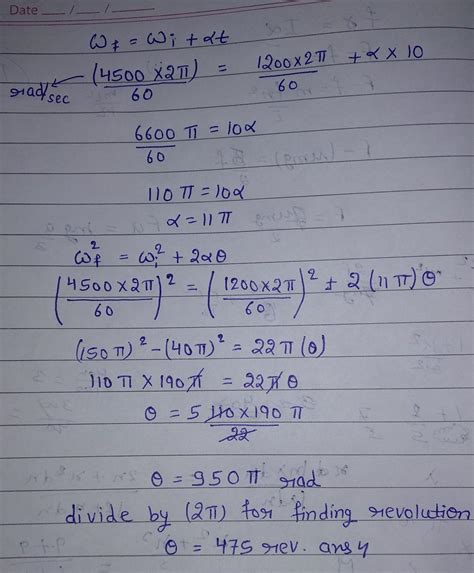 Date ___/___/___
ω_f = ω_i + αt
rad/sec ← (4500×2π)/60 = 1200×2π/60 + α×10
6600/60 π = 10α
110π = 10α
α = 11π
ω_f² = ω_i² + 2αθ
(4500×2π/60)² = (1200×2π/60)² + 2(11π)θ
(150π)² - (40π)² = 22π(θ)
110π × 190π = 22πθ
θ = 5 110×190π/22
θ = 950π rad
divide by (2π) for finding revolution
θ = 475 rev. ans